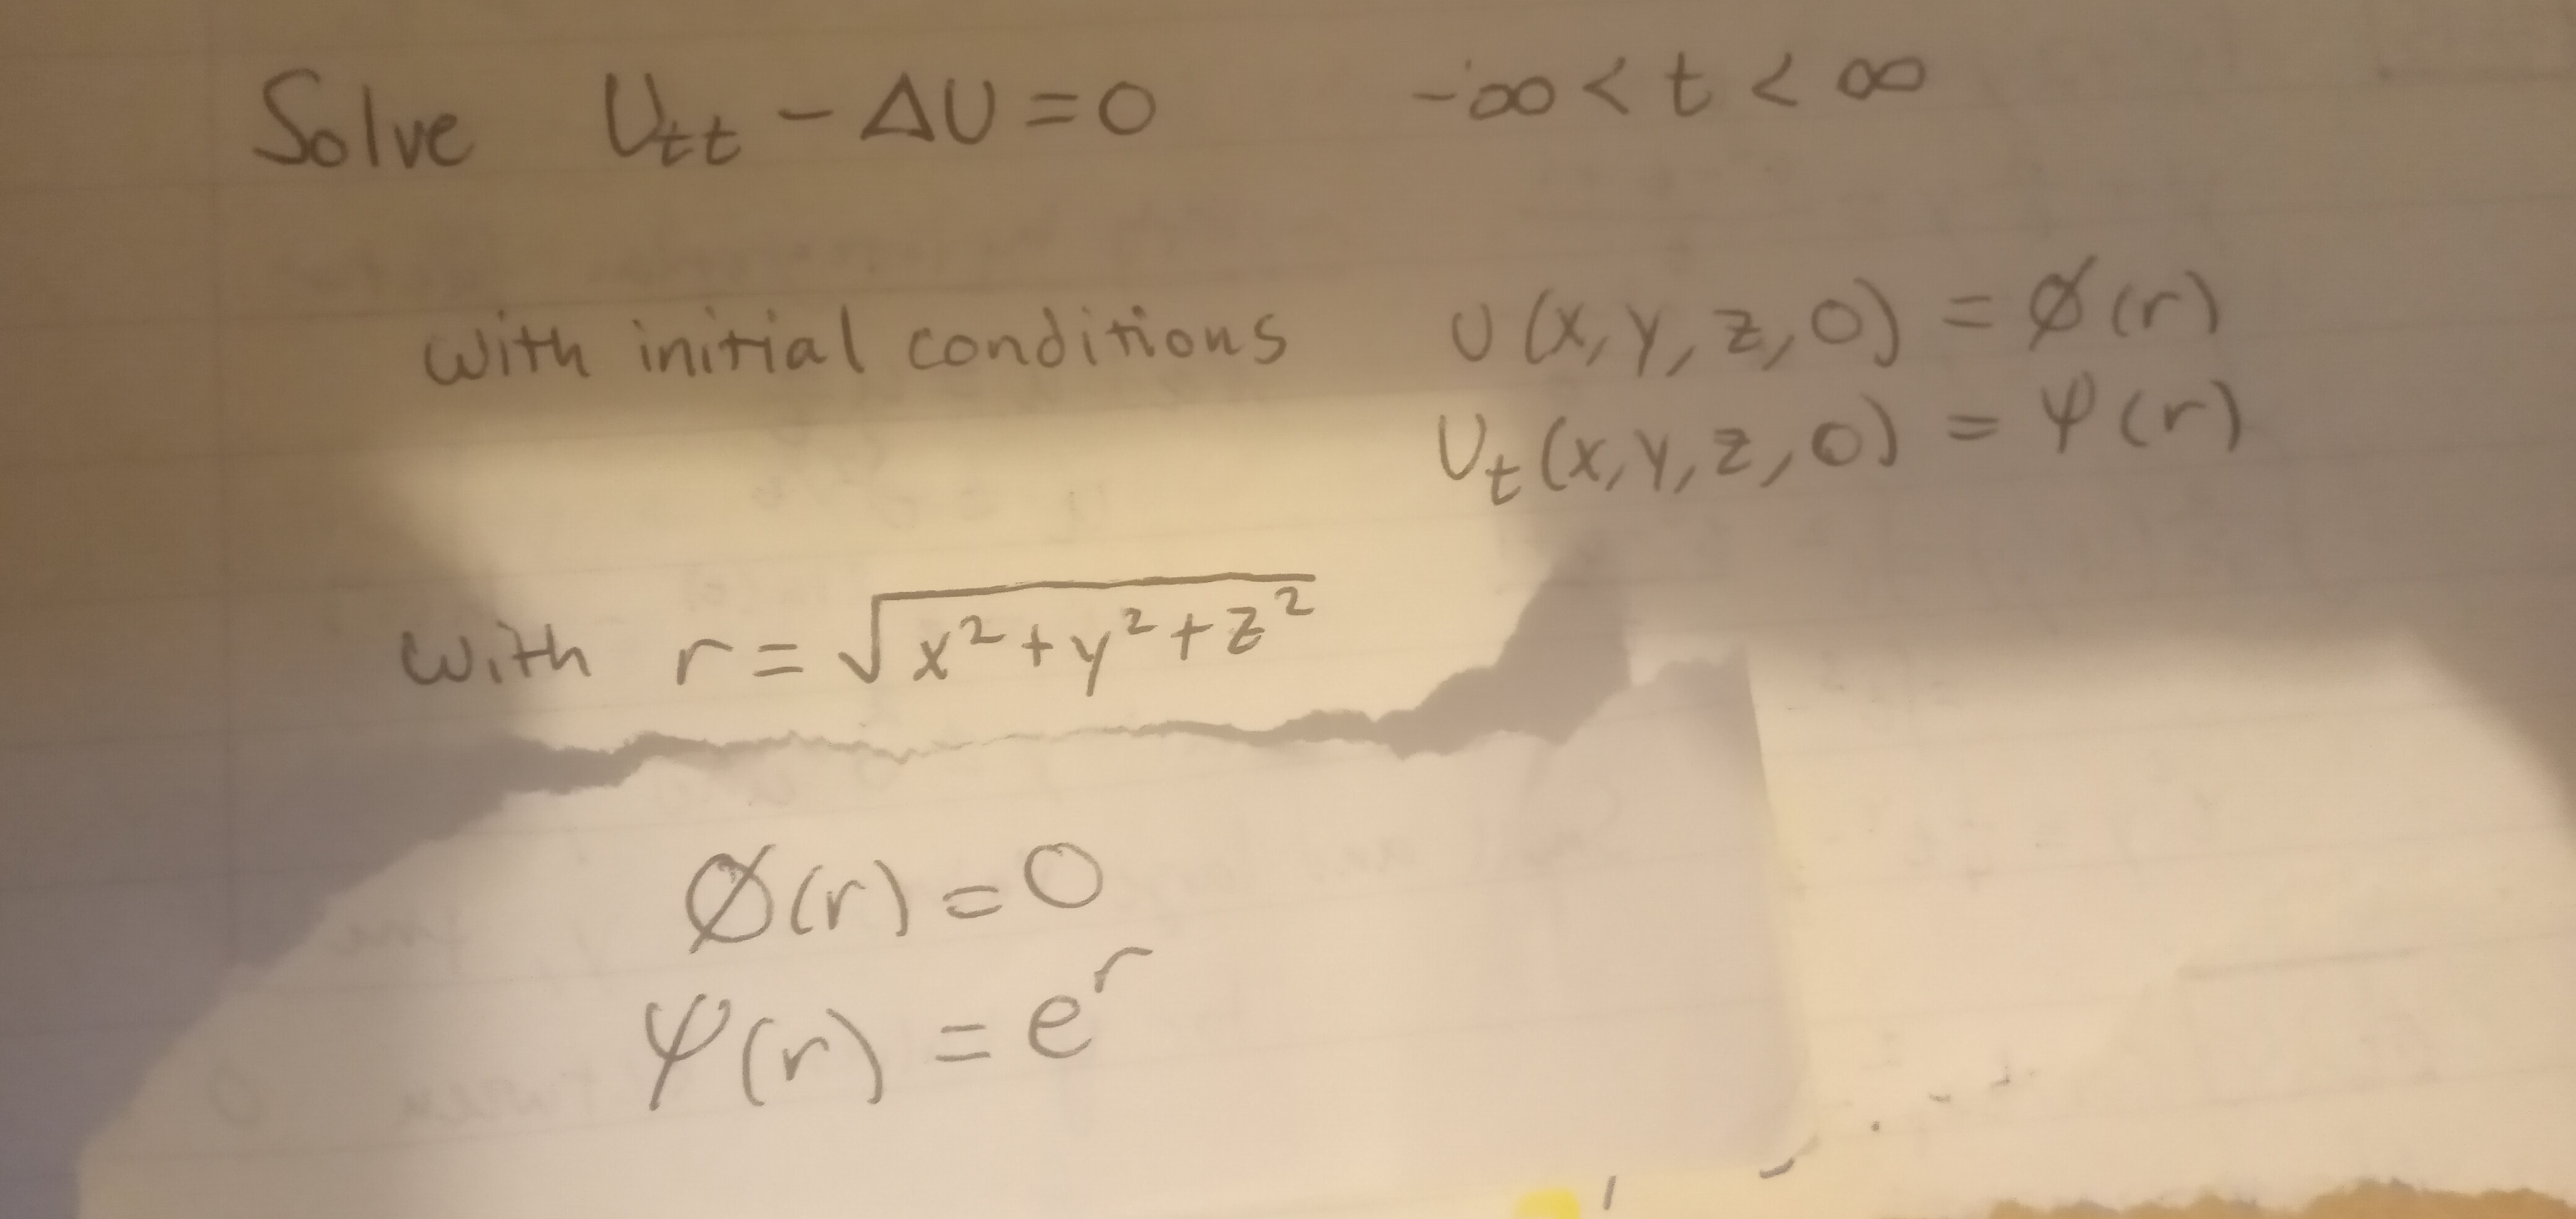 Solve U_tt - ΔU = 0 -∞ < t < ∞
with initial conditions U(x,y,z,0) = ϕ(r)
U_t(x,y,z,0) = ψ(r)
with r = √(x²+y²+z²)
ϕ(r) = 0
ψ(r) = e^r